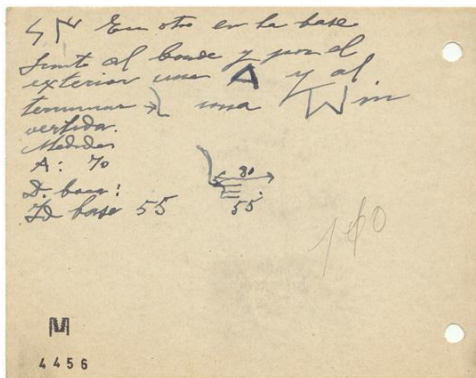 En otro en la base
junto al borde y por el
exterior una A y al
terminar una W in
vertida.
Medidas
A: 70
D. boca: 80
D base 55 55
M
4456